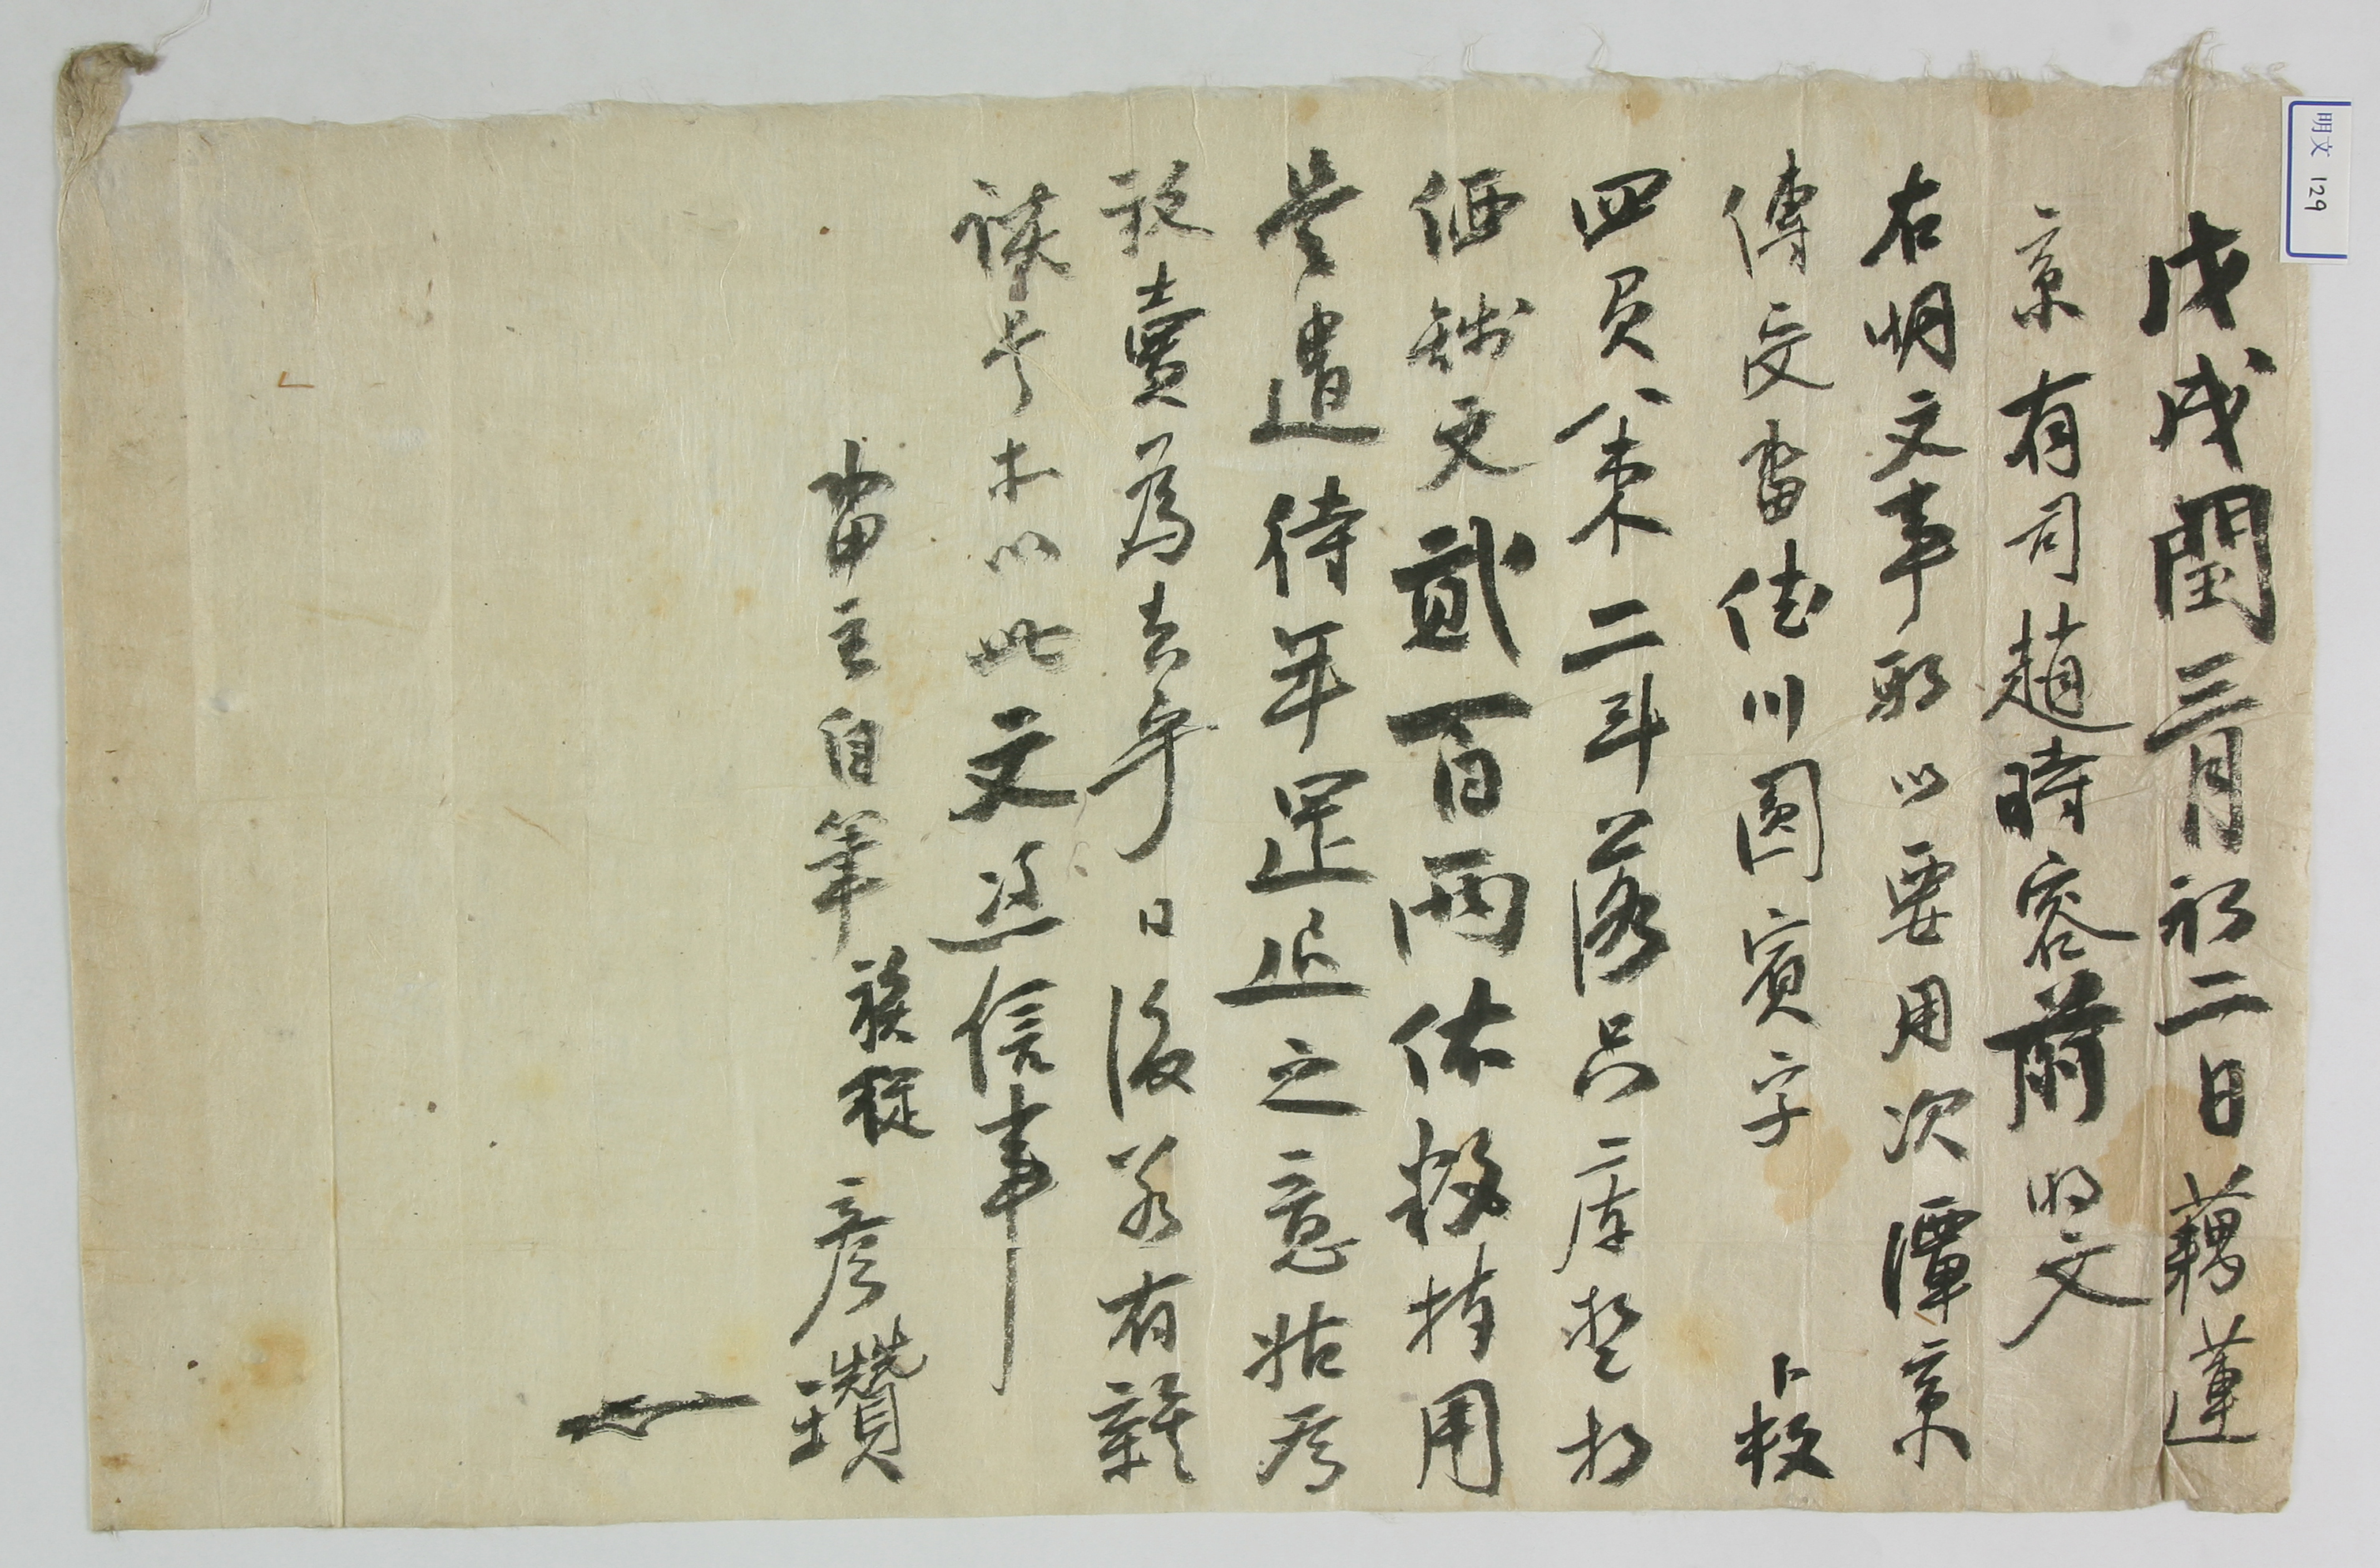 明文 129
戊戌閏三月初二日藕蓮
京有司趙時容前明文
右明文事段以要用次潭京
傳受畓佳川圓賓字 卜数
四負八束二斗落只庫折
価錢文貳百両依数捧用
是遣待年之意姑爲
放賣爲去乎日後若有雜
談以此文憑信事
畓主自筆族從彦瓚